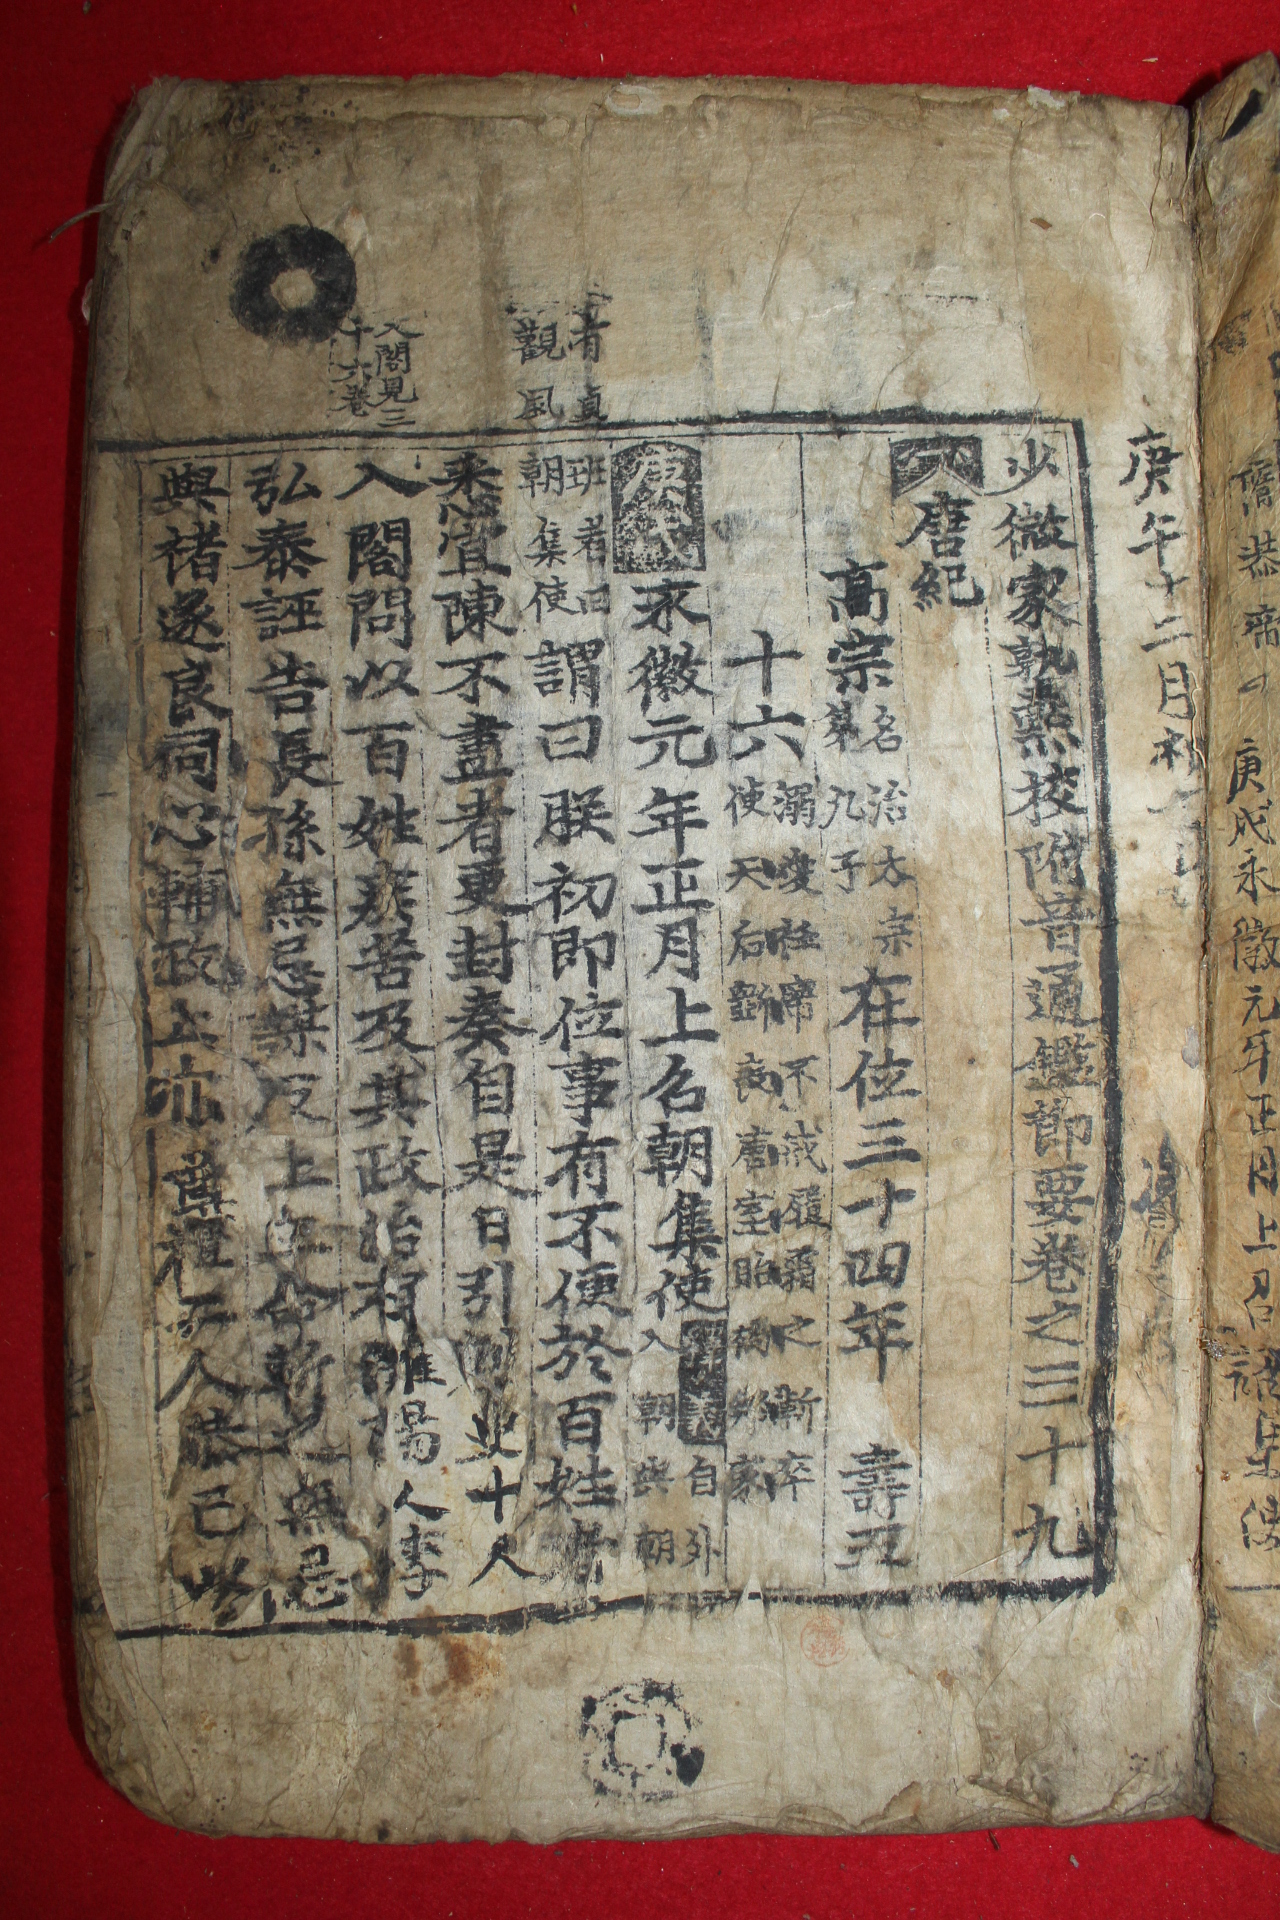 庚午十二月
少微家塾點校附音通鑑節要卷之三十九
唐紀
高宗 名治太宗第九子 在位三十四年 壽五
十六 溺愛衽席不戒履霜之漸卒使天后斲喪唐室貽禍邦家
庚戌 永徽元年正月上召朝集使 自外入朝與朝
班者曰朝集使 謂曰朕初即位事有不便於百姓者
悉宜陳不盡者更封奏自是日引刺史十人
入閤問以百姓疾苦及其政治有雒陽人李
弘泰誣告長孫無忌謀反上立命斬之無忌
與褚遂良同心輔政上亦尊禮二人恭己以
者貞
觀風
入閤見三
十六卷
庚戌永徽元年正月上召